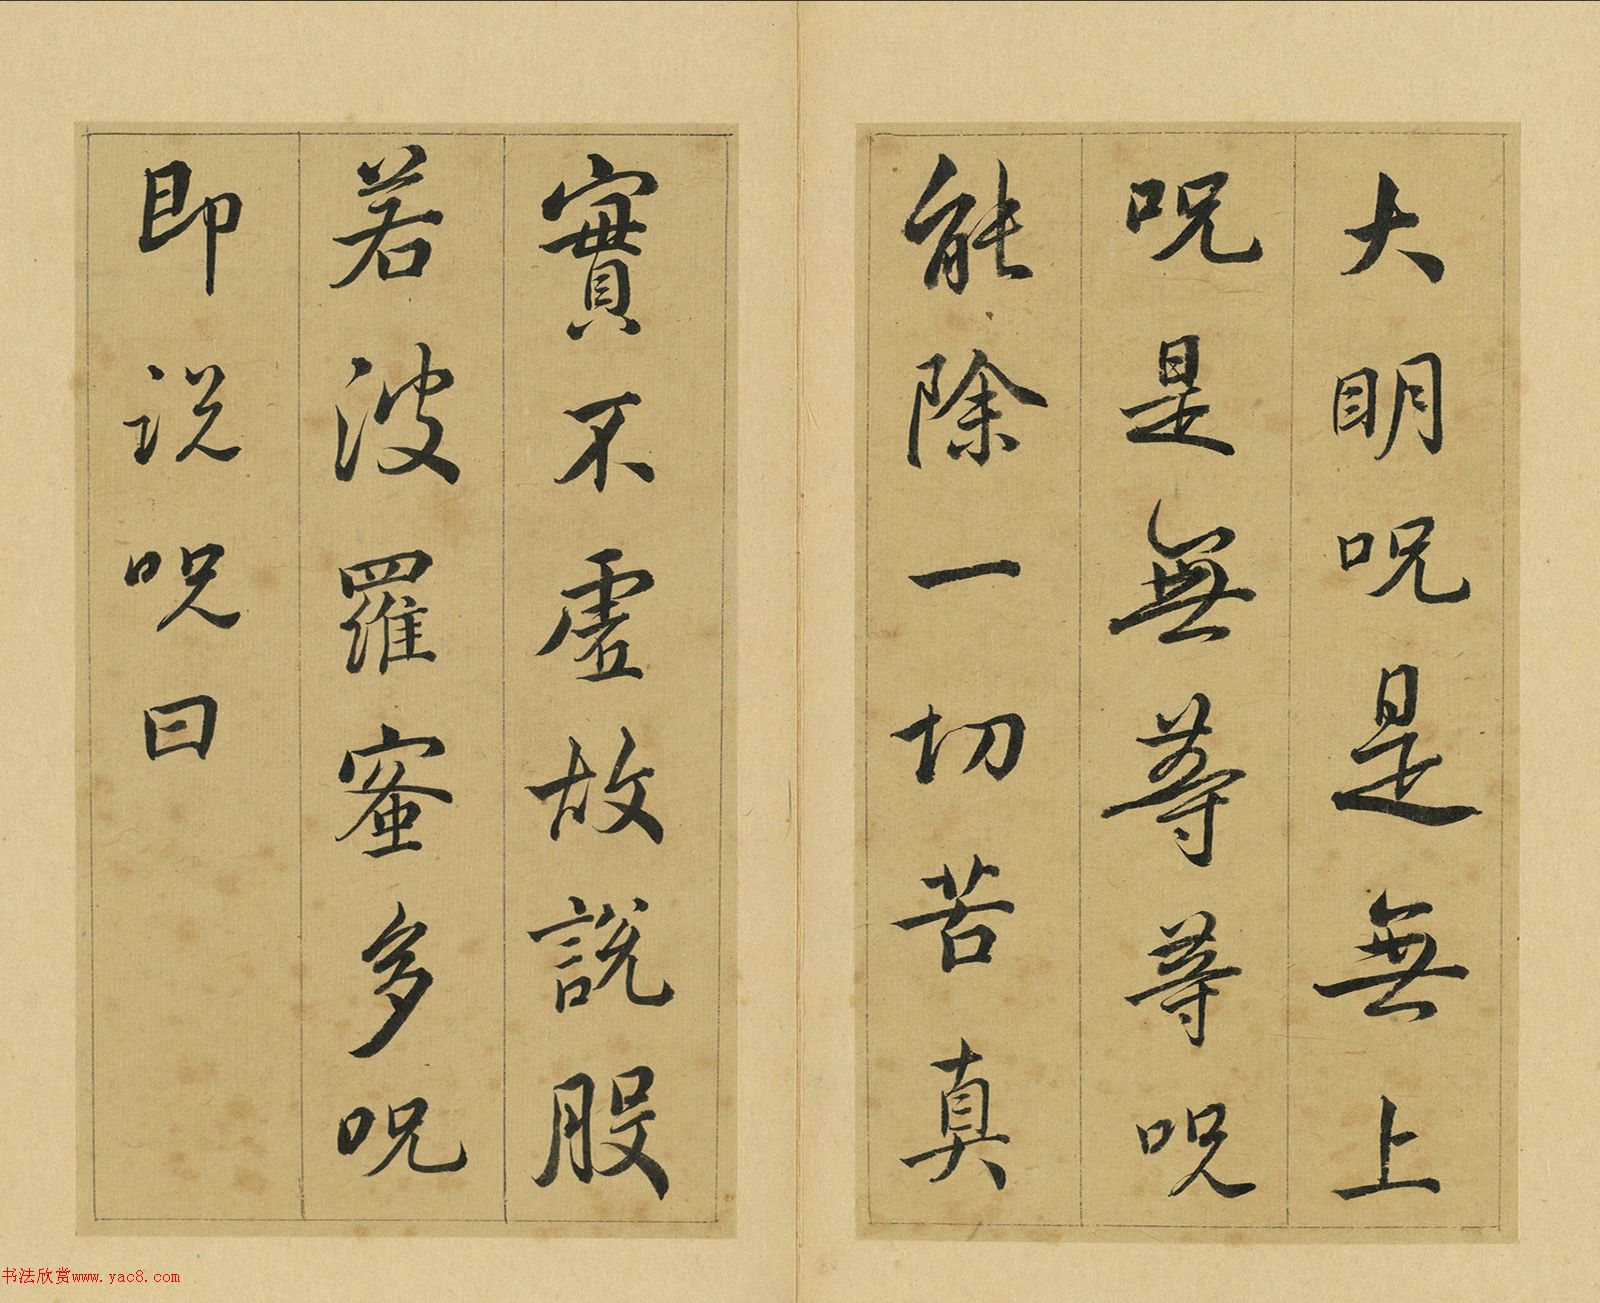 大明呪是無上
呪是無等等呪
能除一切苦真
實不虛故說般
若波羅蜜多呪
即説呪曰
书法欣赏www.yac8.com